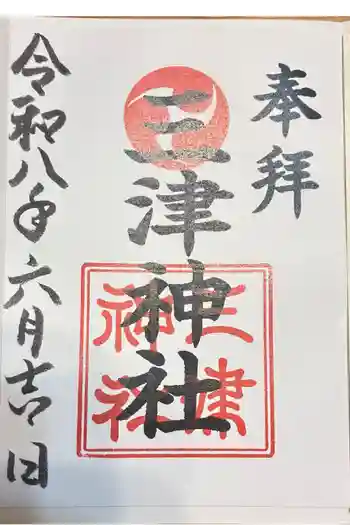 奉拝
三津神社
三津
神社
令和八年六月吉日